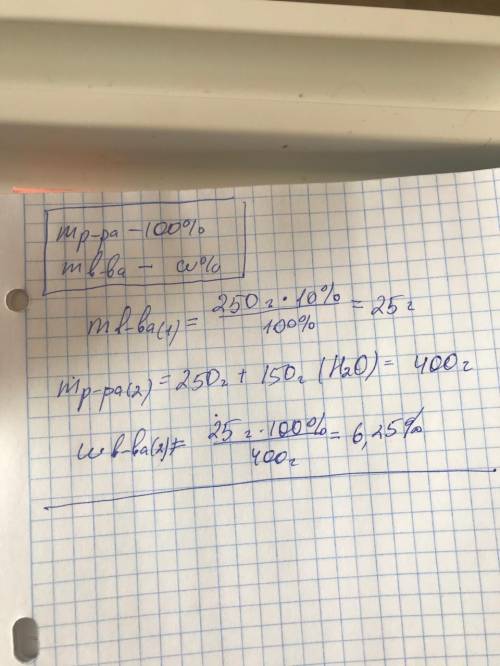 mр-ра – 100%
mв-ва – ω%
mв-ва(1) = 250г · 10% / 100% = 25г
mр-ра(2) = 250г + 150г (H₂O) = 400г
ωв-ва(2) = 25г · 100% / 400г = 6,25%